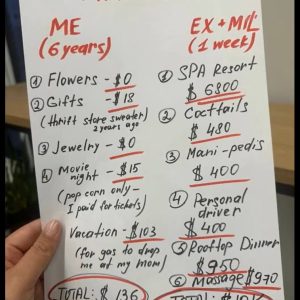 ME
(6 years)
① Flowers - $0
② Gifts - $18
(thrift store sweater)
2 years ago
③ Jewelry - $0
④ Movie
night - $15
(pop corn only-
I paid for tickets)
Vacation - $103
(for gas to drop
me at my mom)
TOTAL: $ 136
EX + MIL
(1 week)
① SPA Resort
$ 6800
② Coctails
$ 480
③ Mani-pedis
$ 400
④ Personal
driver
$ 400
⑤ Rooftop Dinner
$950
⑥ Massage $970